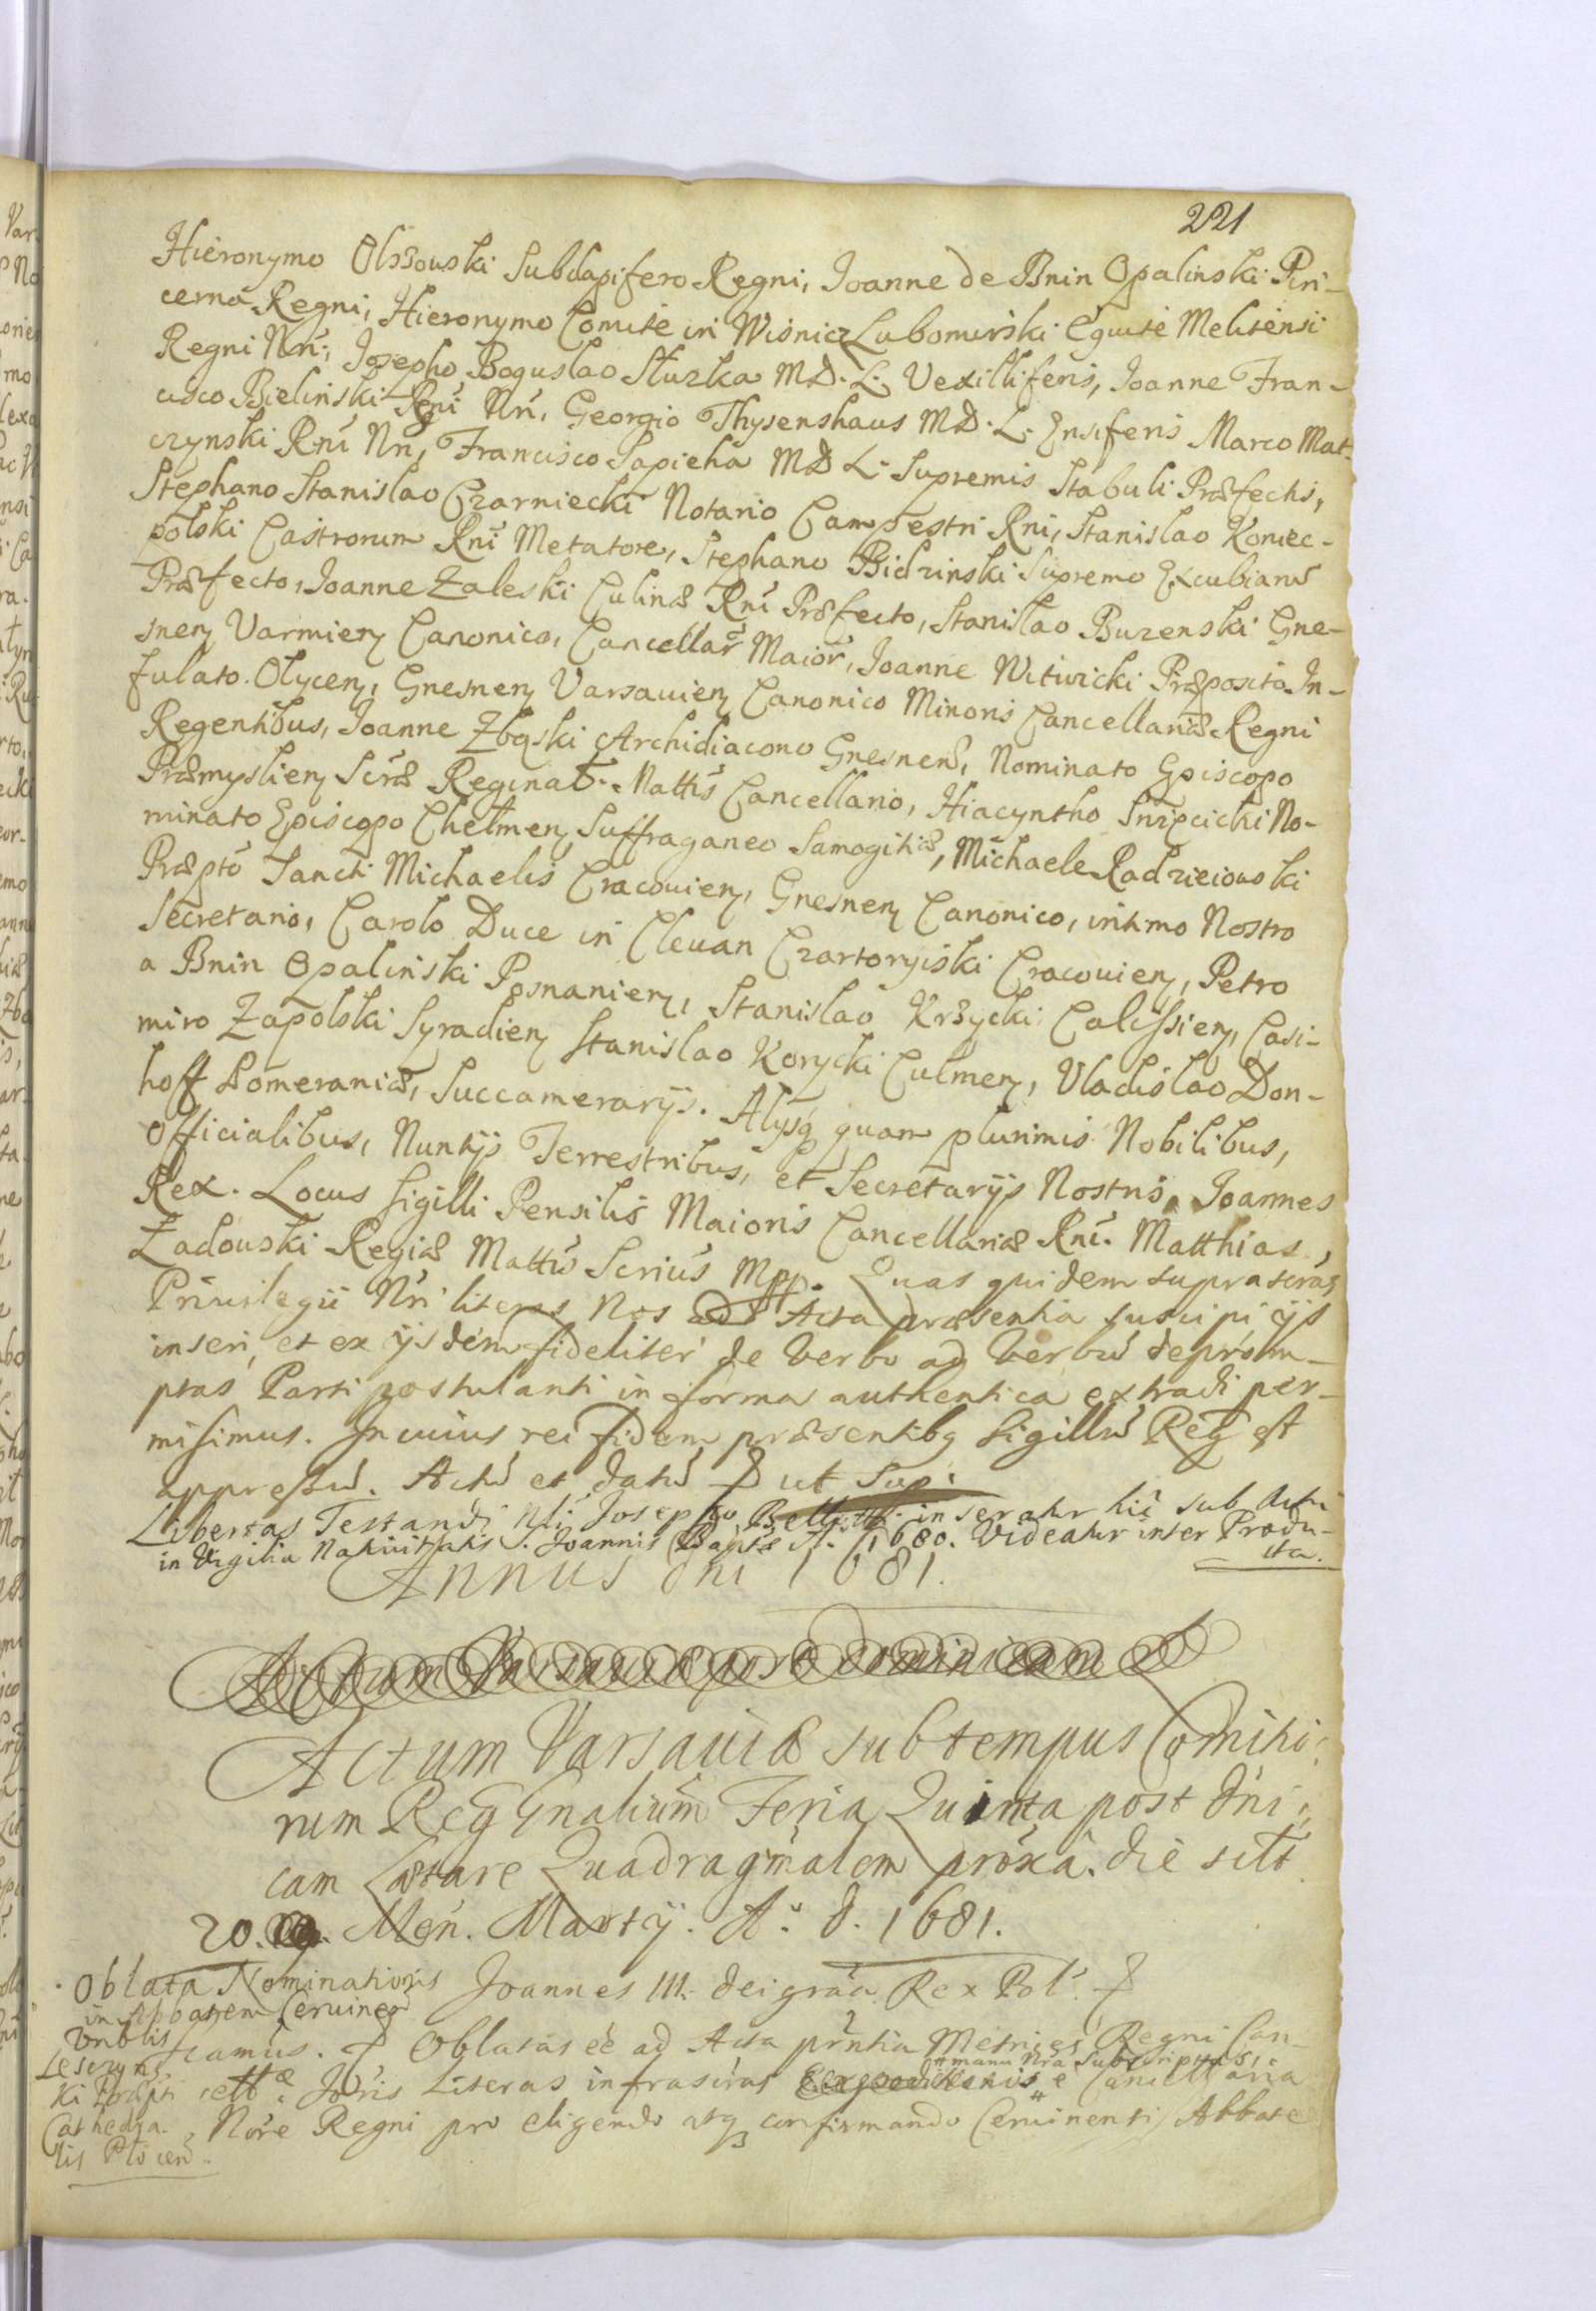 221
Hieronymo Olszowski Subdapifero Regni, Joanne de Bnin Opalinski Pin-
cerna Regni, Hieronymo Comite in Wisnicz Lubomirski Equite Melitensi
Regni Nri, Josepho Boguslao Sluzka M.D.L. Vexilliferis, Joanne Fran-
cisco Bielinski Rgni Nri, Georgio Thysenshaus M.D.L. Ensiferis Marco Mat-
czynski Rni Nri, Francisco Sapieha M D L. Supremis Stabuli Præfectis,
Stephano Stanislao Czarniecki Notario Campestri Rni, Stanislao Koniec-
polski Castrorum Rni Metatore, Stephano Bidzinski Supremo Excubiarū
Præfecto, Joanne Zaleski Culinæ Rni Præfecto, Stanislao Buzenski Gne-
snen Varmien Canonico, Cancellar Maior, Joanne Witwicki Præposito In-
fulato Olycen, Gnesnen Varsavien Canonico Minoris Cancellariæ Regni
Regentibus, Joanne Zbąski Archidiacono Gnesnen, Nominato Episcopo
Præmyslien Scræ Reginal. Mattis Cancellario, Hiacyntho Snipcicki No-
minato Episcopo Chelmen Suffraganeo Samogitiæ, Michaele Radzieiowski
Præpto Sancti Michaelis Cracovien, Gnesnen Canonico, intimo Nostro
Secretario, Carolo Duce in Clevan Czartoryiski Cracovien, Petro
a Bnin Opalinski Posnanien, Stanislao Krzycki Calissien, Casi-
miro Zapolski Syradien Stanislao Korycki Culmen, Vladislao Don-
hoff Pomeraniæ, Succamerarijs. Alijsq quam plurimis Nobilibus,
Officialibus, Nuntijs Terrestribus, et Secretarijs Nostris. Joannes
Rex. Locus Sigilli Pensilis Maioris Cancellariæ Rni. Matthias
Zadowski Regiæ Mattis Scrius Mpp. Quas quidem suprascras
Privilegii Nri literas Nos ad Acta præsentia suscipi, ijs
inseri, et ex ijsdem fideliter de verbo ad verbū deprom-
ptas Parti postulanti in forma authentica extradi per-
misimus. In cuius rei fidem præsentibq Sigillū Reg est
appressū. Actū et datū ut Sup.
Libertas Testandi Nli Josepho inseratur hic sub Actu
in Vigilia Nativitatis S. Joannis Bapte A. 1680. Videatur inter Produ-
cta.
Annus Dni 1681.
Actum Varsaviæ post Dominicam
Actum Varsaviæ sub tempus Comitio-
rum Reg Gnalium Feria Quinta post Dni-
cam Lætare Quadragmalem proxa. die scilt
20. Men. Martij. A.º D. 1681.
Oblata Nominationis
in Abbatem Cervinen
Vrablis
Leszczyns
ki Præpti
Cathedra-
lis Plocen.
Joannes III. Dei grãa Rex Pol.
camus. Oblatas eē ad Acta prntia Metrices Regni Can-
manu Nra Subscriptas
cellæ Joris Literas infrascras Expeditionis e Cancellaria
Nore Regni pro eligendo atq confirmando Cervinenti Abbate